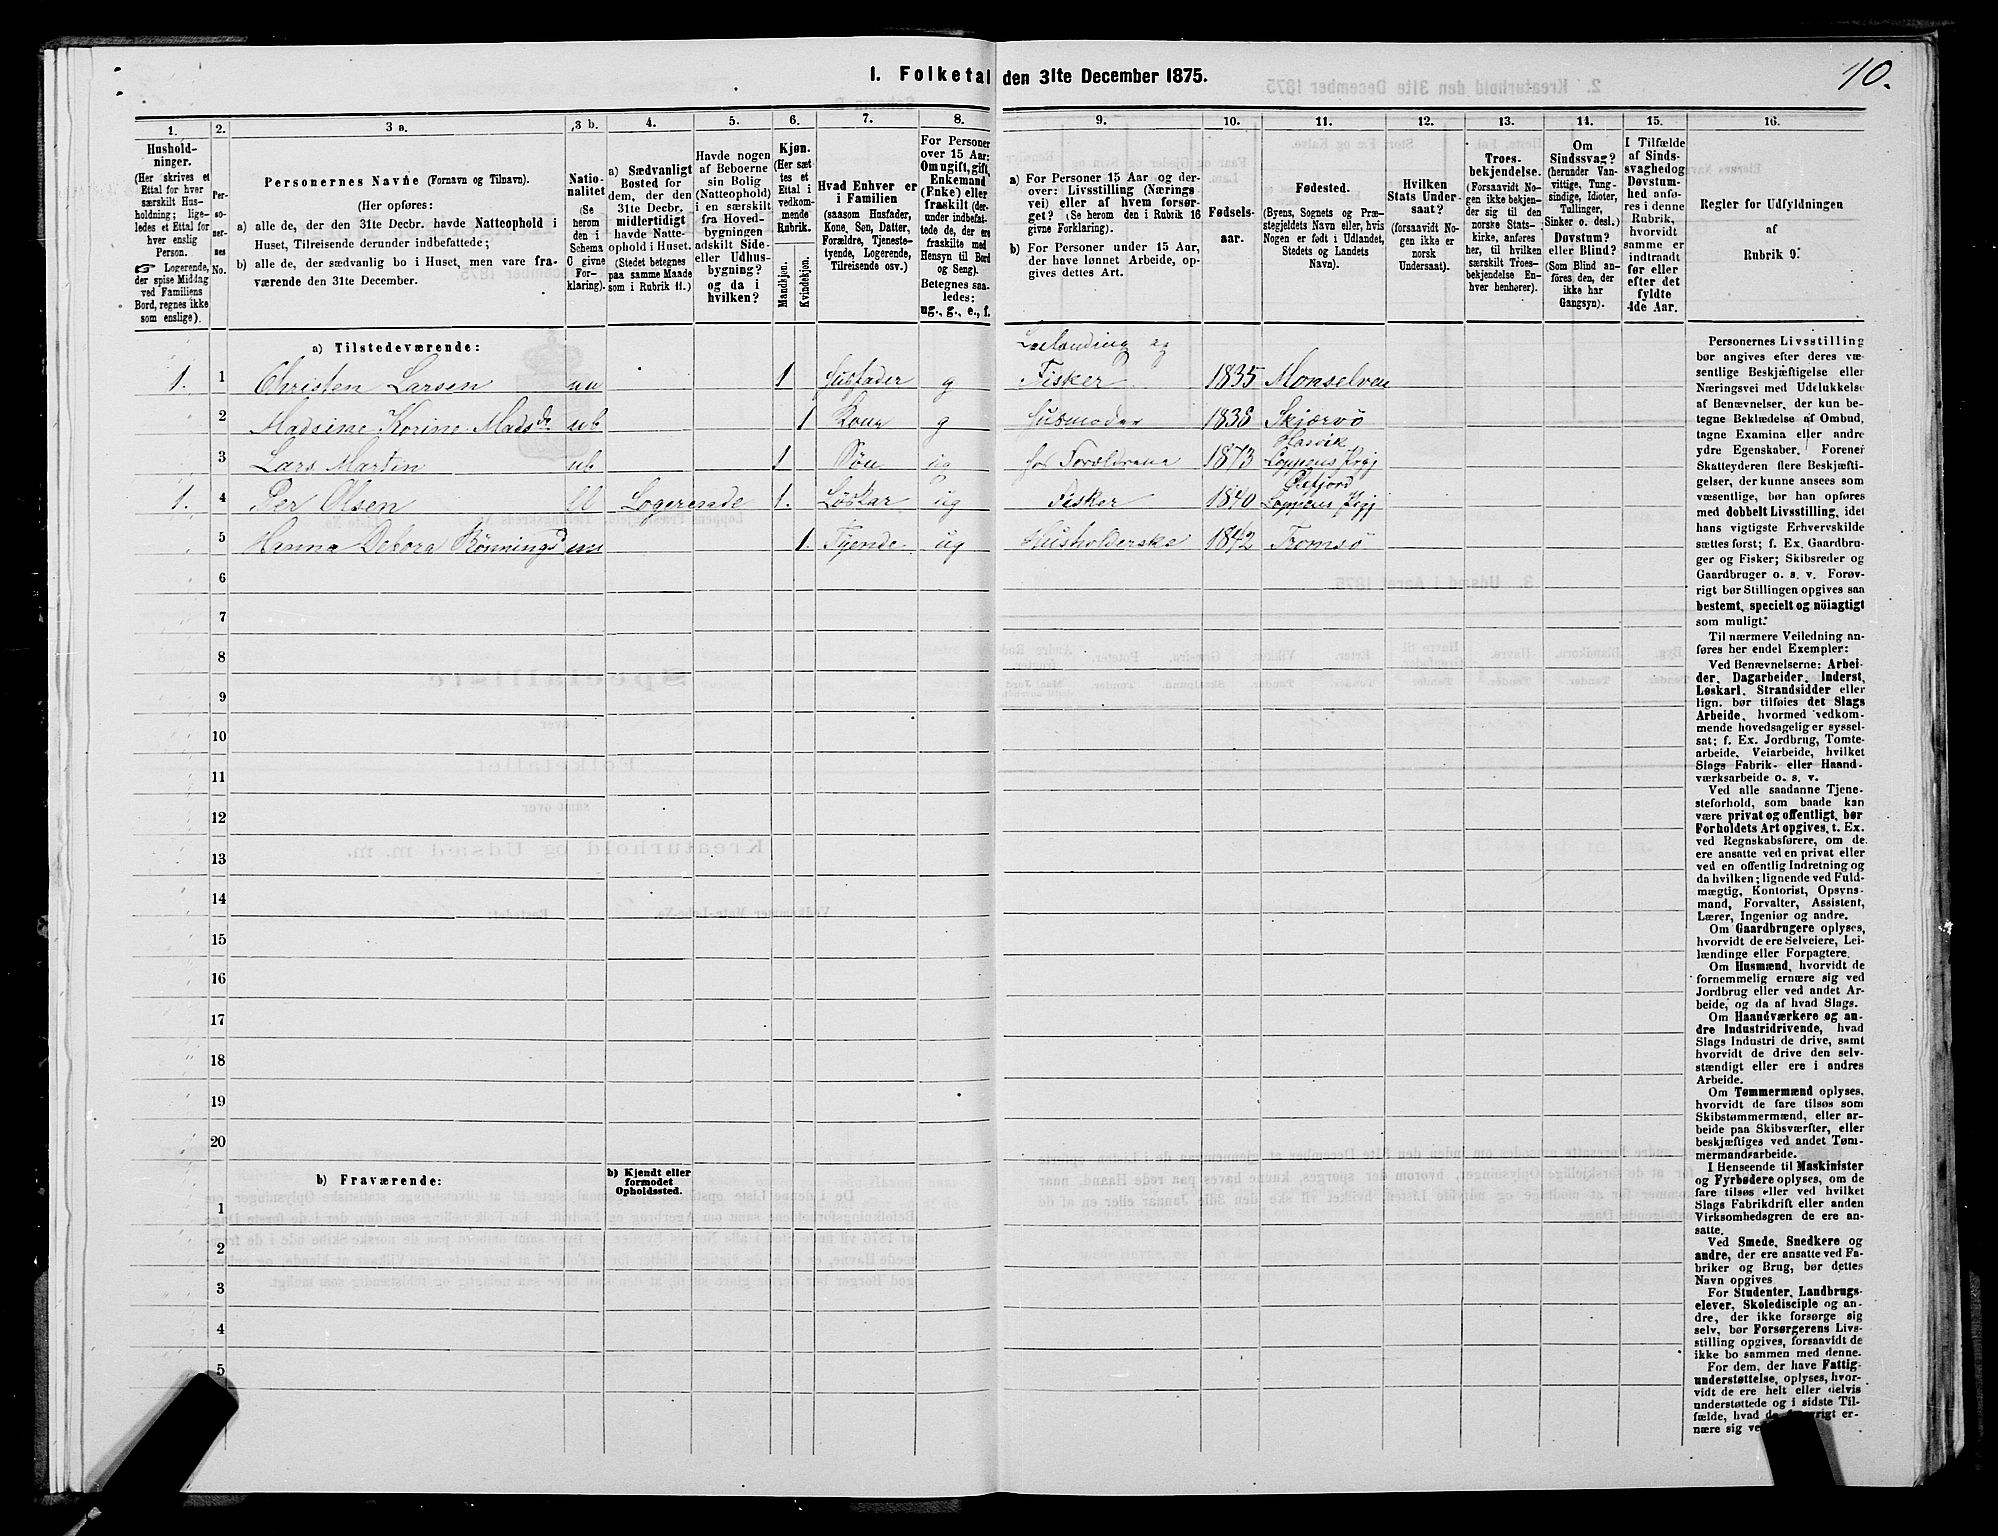 1. Folketal den 31te December 1875.
10.
1.
Hushold-
ninger.
(Her skrives et
Ettal for hver
særskilt Hus-
holdning; lige-
ledes et Ettal for
hver enslig
Person.
Logerende,
der spise Middag
ved Familiens
Bord, regnes ikke
som enslige).
2.
Per-
so-
ner-
nes
No.
3 a.
Personernes Navne (Fornavn og Tilnavn).
(Her opføres:
a) alle de, der den 31te Decbr. havde Natteophold i
Huset, Tilreisende derunder indbefattede;
b) alle de, der sædvanlig bo i Huset, men vare fra-
værende den 31te December.
3 b.
Natio-
nalitet
(Se
herom
den i
Schema
C givne
For-
klaring).
4.
a) Sædvanligt
Bosted for
dem, der den
31te Decbr.
midlertidigt
havde Natte-
ophold i Huset.
(Stedet betegnes
paa samme Maade
som i Rubrik 11.)
5.
Havde nogen
af Beboerne
sin Bolig
(Natteophold)
i en særskilt
fra Hoved-
bygningen
adskilt Side-
eller Udhus-
bygning?
og da i
hvilken?
6.
Kjøn.
(Her sæt-
tes et
Ettal i
vedkom-
mende
Rubrik.
Mandkjøn.
Kvindekjøn.
7.
Hvad Enhver er
i Familien
(saasom Husfader,
Kone, Søn, Datter,
Forældre, Tjeneste-
tyende, Logerende,
Tilreisende osv.)
8.
For Personer
over 15 Aar:
Om ugift, gift,
Enkemand
(Enke) eller
fraskilt (der-
under indbefat-
tede de, der ere
fraskilte med
Hensyn til Bord
og Seng).
Betegnes saa-
ledes:
ug., g., e., f.
9.
a) For Personer 15 Aar og der-
over: Livsstilling (Nærings
vei) eller af hvem forsør-
get? (Se herom den i Rubrik 16
givne Forklaring).
b) For Personer under 15 Aar,
der have lønnet Arbeide, op-
gives dettes Art.
10.
Fødsels-
aar.
11.
Fødested.
(Byens, Sognets og Præ-
stegjeldets Navn eller, hvis
Nogen er født i Udlandet,
Stedets og Landets
Navn).
12.
Hvilken
Stats Under-
saat?
(forsaavidt No-
gen ikke er
norsk
Undersaat).
13.
Troes-
bekjendelse.
(Forsaavidt No-
gen ikke bekjen-
der sig til den
norske Stats-
kirke, anføres
her, til hvilken
særskilt Troes-
bekjendelse En-
hver henhører).
14.
Om
Sindssvag?
(herunder Van-
vittige, Tung-
sindige, Idioter,
Tullinger,
Sinker o. desl.)
Døvstum?
eller Blind?
(Som Blind an-
föres den, der
ikke har
Gangsyn).
15.
I Tilfælde
af Sinds-
svaghed og
Døvstum-
hed anfø-
res i denne
Rubrik,
hvorvidt
samme er
indtraadt
før eller
efter det
fyldte
4de Aar.
16.
Regler for Udfyldningen
af
Rubrik 9.
a) Tilstedeværende:
1. 1 Christen Larsen nu 1 Husfader g Leilænding og Fisker 1835 Monselven
2 Madsine Korine Madsdr ub 1 Kone g Husmoder 1838 Skjærvö
3 Lars Martin ub 1 Sön ug hos Foreldrene 1873 Hasvik Loppens Pgj
1. 4 Per Olsen Logerende 1. Löskar ug Fisker 1840 Öxfjord Loppens Pgj
5 Hanna Debora Rönningsd nu 1. Tyende ug Husholderske 1842 Tromsö
6
7
8
9
10
11
12
13
14
15
16
17
18
19
20
b) Fraværende:
b) Kjendt eller
formodet
Opholdssted.
1
2
3
4
5
Personernes Livsstilling
bør angives efter deres væ-
sentlige Beskjæftigelse eller
Næringsvei med Udelukkelse
af Benævnelser, der kun be-
tegne Beklædelse af Ombud,
tagne Examina eller andre
ydre Egenskaber. Forener
Skatteyderen flere Beskjæfti-
gelser, der kunne ansees som
væsentlige, bør han opføres
med dobbelt Livsstilling, idet
hans vigtigste Erhvervskilde
sættes først; f. Ex. Gaardbru-
ger og Fisker; Skibsreder og
Gaardbruger o. s. v. Forøv-
rigt bør Stillingen opgives saa
bestemt, specielt og nöiagtigt
som muligt.
Til nærmere Veiledning an-
føres her endel Exempler:
Ved Benævnelserne: Arbei-
der, Dagarbeider, Inderst,
Løskarl, Strandsidder eller
lign. bør tilføies det Slags
Arbeide, hvormed vedkom-
mende hovedsagelig er syssel-
sat; f. Ex. Jordbrug, Tomte-
arbeide, Veiarbeide, hvilket
Slags Fabrik- eller Haand-
værksarbeide o. s. v.
Ved alle saadanne Tjene-
steforhold, som baade kan
være privat og offentligt, bør
Forholdets Art opgives, t. Ex.
ved Regnskabsførere, om de
ere ansatte ved en privat eller
ved en offentlig Indretning og
da hvilken; lignende ved Fuld-
mægtig, Kontorist, Opsyns-
mand, Forvalter, Assistent,
Lærer, Ingeniør og andre.
Om Gaardbrugere oplyses,
hvorvidt de ere Selveiere, Lei-
lændinge eller Forpagtere.
Om Husmænd, hvorvidt de
fornemmelig ernære sig ved
Jordbrug eller ved andet Ar-
beide, og da af hvad Slags.
Om Haandværkere og an-
dre Industridrivende, hvad
Slags Industri de drive, samt
hvorvidt de drive den selv-
stændigt eller ere i andres
Arbeide.
Om Tømmermænd oplyses,
hvorvidt de fare tilsøs som
Skibstømmermænd, eller ar-
beide paa Skibsværfter, eller
beskjæftiges ved andet Tøm-
mermandsarbeide.
I Henseende til Maskinister
og Fyrbødere oplyses, om de
fare tilsøs eller ved hvilket
Slags Fabrikdrift eller anden
Virksomhedsgren de ere an-
satte.
Ved Smede, Snedkere og
andre, der ere ansatte ved Fa-
briker og Brug, bør dettes
Navn opgives
For Studenter, Landbrugs-
elever, Skoledisciple og an-
dre, der ikke forsørge sig
selv, bør Forsørgerens Livs-
stilling opgives, forsaavidt de
ikke bo sammen med denne.
For dem, der have Fattig-
understøttelse, oplyses, hvor-
vidt de ere helt eller delvis
understøttede og i sidste Til-
fælde, hvad de forøvrigt er-
nære sig ve